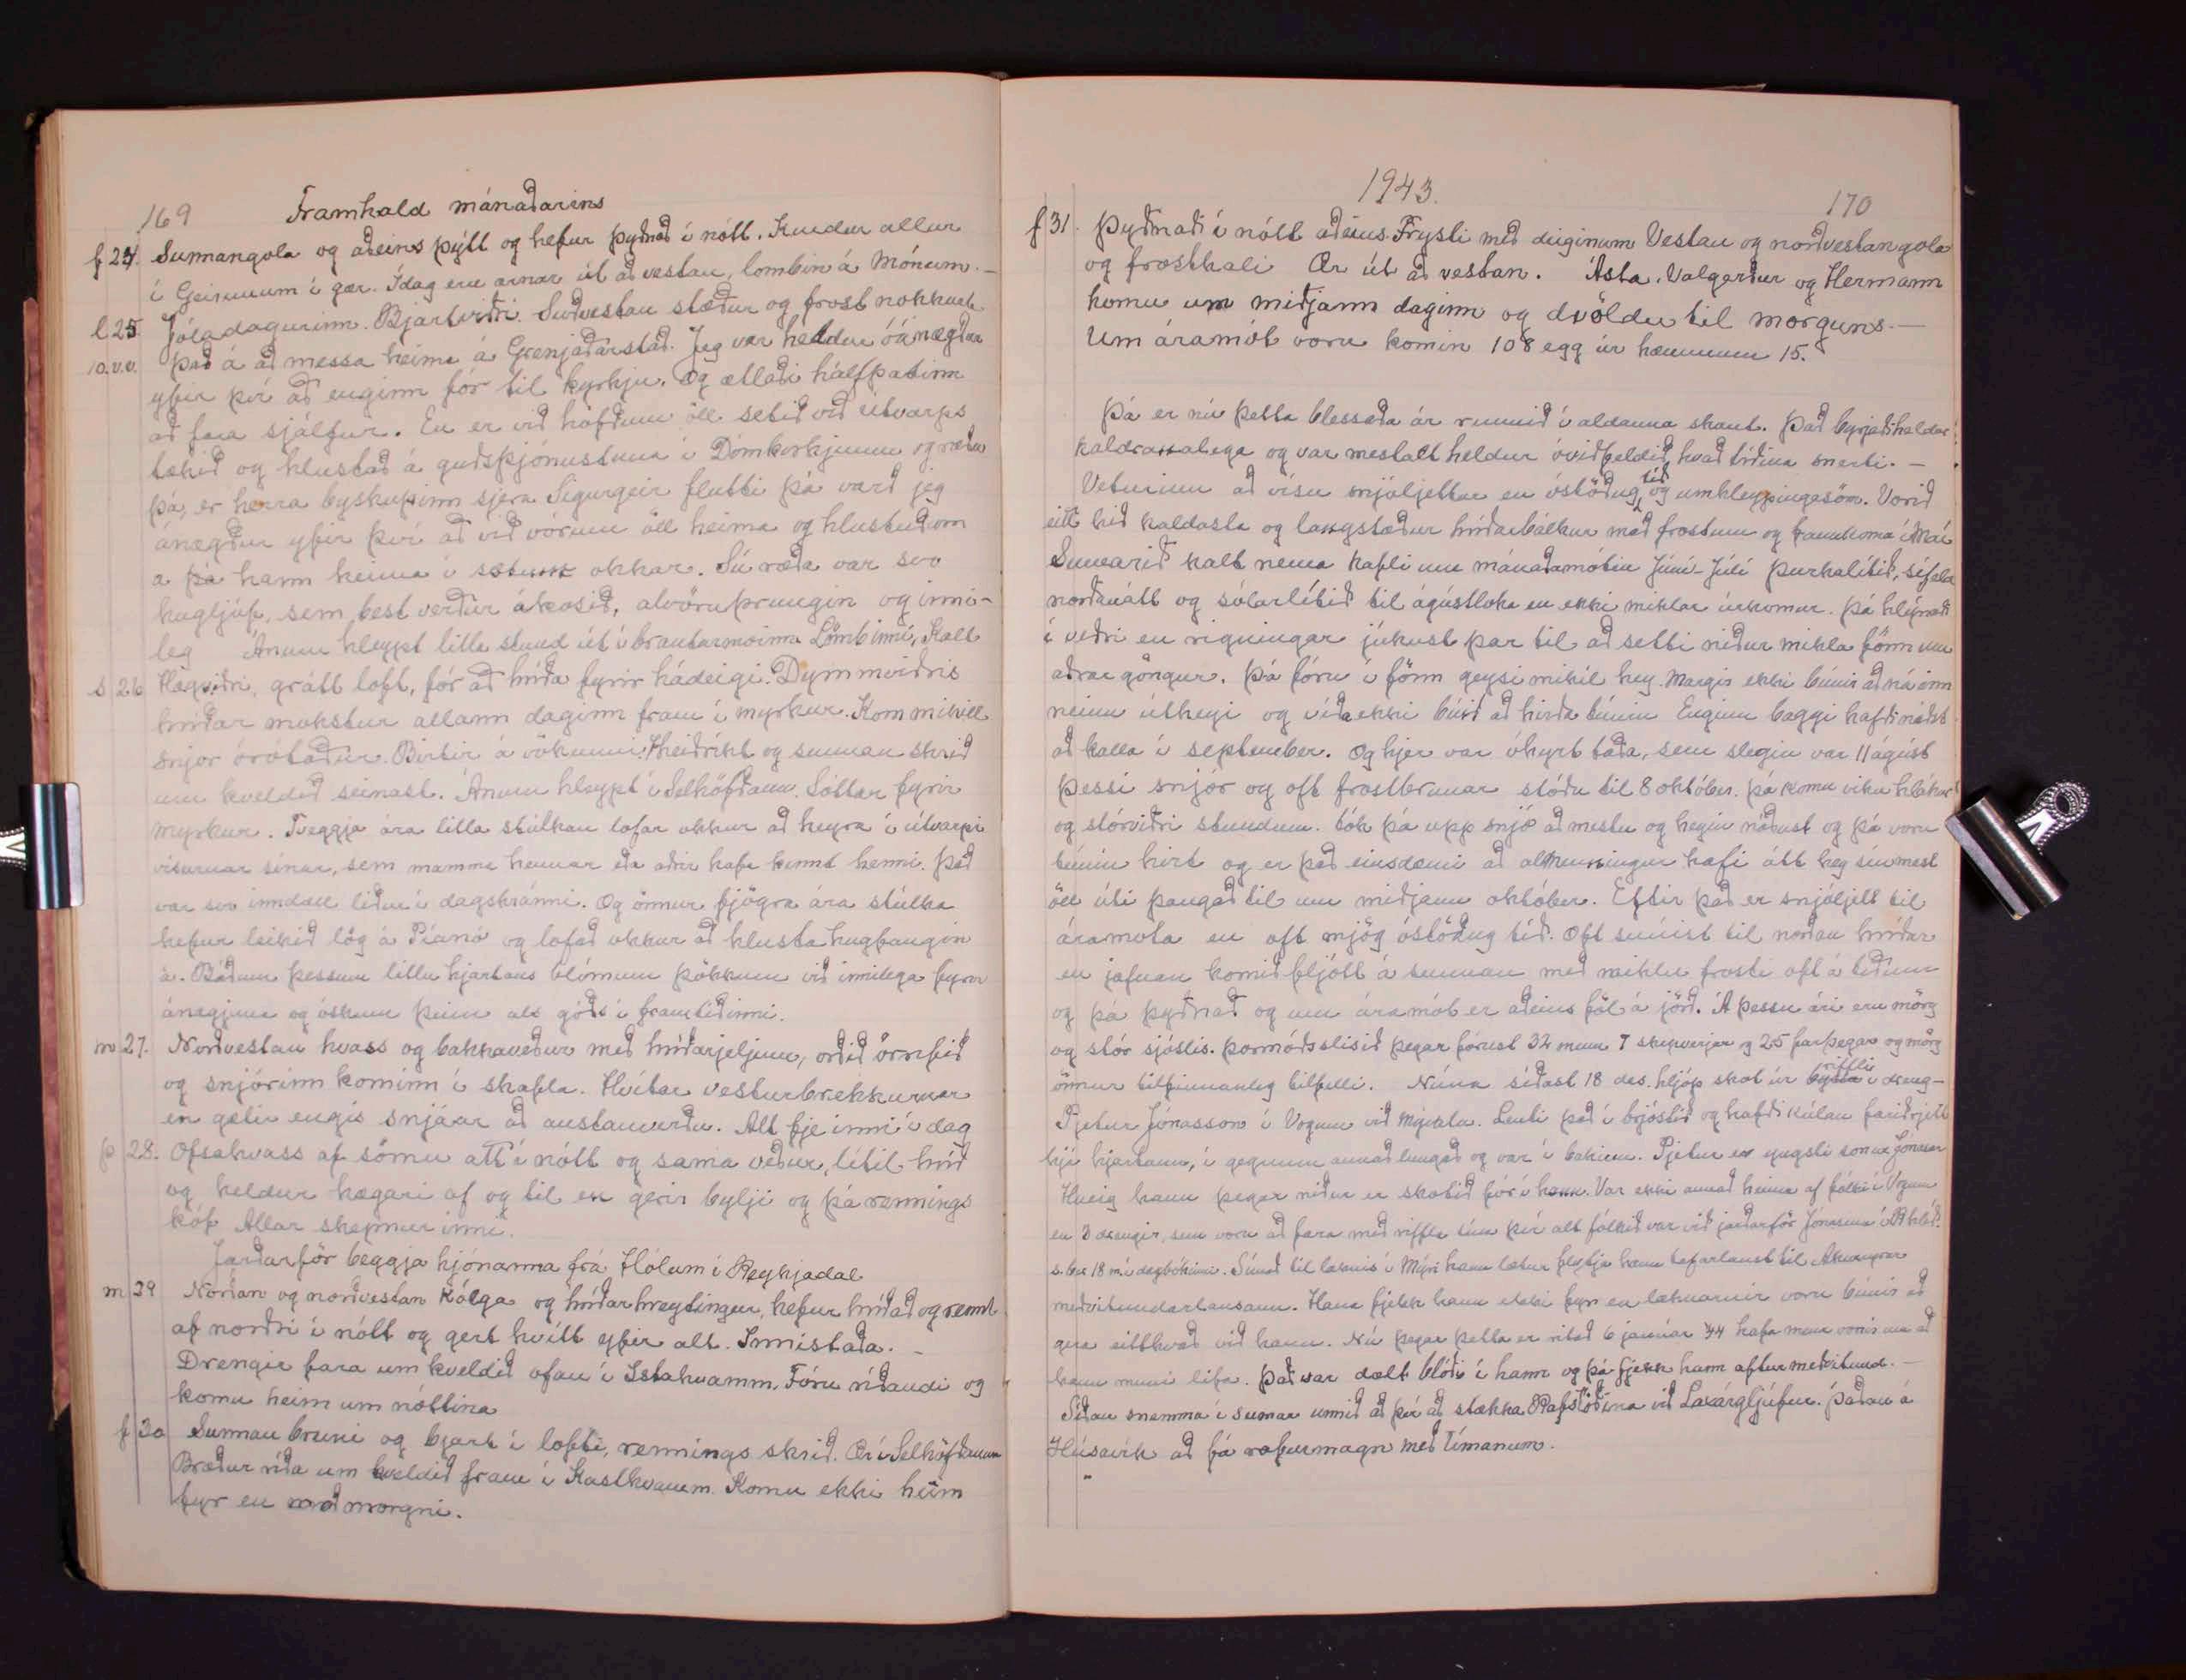 169 Framhald mánaðarins
f 24. Sunnangola og aðeins þýtt og hefur þyðnað í nótt. allur
í Geirunum í gær. Ídag eru ærnar út að vestan, lömbin á Mónum. -
l 25 Jóladagurinn. Bjartviðri. Suðvestan stæður og frost nokkurt.
Það á að messa heima á Grenjaðarstað. Jeg var heldur óánægður
yfir því að enginn fór til kyrkju. Og ætlaði hálfpatinn
að fara sjálfur. En er við höfðum öll setið við útvarps
tækið og hlustað á guðsþjónustuna í Dómkirkjunni og ræðu
þá, er herra byskupinn sjera Sigurgeir flutti þá varð jeg
ánægður yfir því að við vórum öll heima og hlustuðum
a þá hann heima í sætum okkar. Sú ræða var svo
hugljúf, sem best verður ákosið, alvöruþrungin og inni-
leg Ánum hleypt litla stund út í brautarmoinn Lömb inni, Kalt
s 26 Hægviðri, grátt loft, fór að hríða fyrir hádeigi. Dymmviðris
hríðar mokstur allann daginn fram í myrkur. Kom mikill
snjor órótaður. Birtir á vökunni. Heiðríkt og sunnan skrið
um kveldið seinast. Ánum hleypt í Selhöfðann. Sóttar fyrir
myrkur. Tveggja ára litla stúlkan lofar okkur að heyra í útvarpi
vísurnar sínar, sem mamma hennar eða aðrir hafa kennt henni. Það
var svo inndæll liður í dagskránni. Og önnur fjögra ára stúlka
hefur leikið lög á Píanó og lofað okkur að hlusta hugfangin
á. Báðum þessum litlu hjartans blómum þökkum við innilega fyrir
ánægjuna og óskum þeim als góðs í framtíðinni.
m 27. Norðvestan hvass og bakkaveður með hríðarjeljum, orðið örrifið
og snjórinn kominn í skafla. Hvítar vesturbrekkurnar
en gætir engis snjáar að austanverðu. Alt fje inni í dag
þ 28. Ofsahvass af sömu átt í nótt og sama veður, lítil hríð
og heldur hægari af og til en gerir bylji og þá rennings
kóf Allar skepnur inni.
Jarðarför beggja hjónanna frá Hólum í Reykjadal
m 29 Norðan og norðvestan kólga og hríðarhreytingur, hefur hríðað og rennt
af norðri í nótt og gert hvítt yfir alt. Innistaða. -
Drengir fara um kveldið ofan í Ystahvamm. Fóru ríðandi og
komu heim um nóttina
f 30 Sunnan bruni og bjart í lofti, rennings skrið. Ær í Selhöfðanum
Bræður ríða um kveldið fram í Kasthvamm. Komu ekki heim
fyr en með morgni.
1943. 170
f 31. Þyðnaði í nótt aðeins. Frysti með deiginum Vestan og norðvestangola
og frostkali Ær út að vestan. Ásta, Valgerður og Hermann
komu um miðjann daginn og dvöldu til morguns. -
Um áramót voru komin 108 egg úr hænunum 15.
Þá er nú þetta blessaða ár runnið í aldanna skaut. Það byrjaði heldur
kaldranalega og var mestallt heldur óviðfeldið, hvað tíðina snerti. -
Veturinn að vísu snjóljettur en óstöðug tíð og umhleypingasöm. Vorið
eitt hið kaldasta og langstæður hríðarbálkur með frostum og fannkoma í Maí
Sumarið kalt nema kafli um mánaðamótin Júní-Júlí þurkalítið, sífeld
norðanátt og sólarlítið til ágústloka en ekki miklar úrkomur. Þá hlýnaði
í veðri en rigningar jukust þar til að setti niður mikla fönn um
aðrar göngur. Þá fóru í fönn geysi mikil hey. Margir ekki búnir að ná inn
neinu útheyi og víða ekki búið að hirða túnin Enginn baggi hafði náðst
að kalla í september. Og hjer var óhyrt taða, sem slegin var 11 ágúst
Þessi snjór og oft frostbrunar stóðu til 8 október. Þá komu viku hlákur
og stórviðri stundum. tók þá upp snjó að mestu og heyin náðust og þá voru
túnin hirt og er það einsdæmi að almenningur hafi átt hey sín mest
öll úti þangað til um miðjann október. Eftir það er snjóljett til
áramóta en oft mjög óstöðug tíð. Oft snúist til norðan hríðar
en jafnan komið fljótt á sunnan með miklu frosti oft á tíðum
og þá þyðnað og um áramót er aðeins föl á jörð. Á þessu ári eru mörg
og stór sjóslis. Þormóðsslisið þegar fórust 32 menn 7 skipverjar og 25 farþegar og mörg
önnur tilfinnanleg tilfelli. Núna síðast 18 des. hljóp skot úr riffli í dreng-
Pjetur Jónasson í Vogum við Mývatn. Lenti það í brjóstið og hafði kúlan farið rjett
hjá hjartanu, í gegnum annað lungað og var í bakinu. Pjetur er yngsti sonur Jónasar
Hneig hann þegar niður er skotið fór í hann. Var ekki annað heima af fólki í Vogum
en 2 drengir, sem voru að fara með riffla sína því alt fólkið var við jarðarför Jónasar í Rhlíð.
s.ber 18 m í dagbókinni. Símað til læknis í Mýri hann lætur flytja hann tafarlaust til Akureyrar
meðvitundarlausann. Hana fjekk hann ekki fyr en læknarnir voru búnir að
gera eitthvað við hann. Nú þegar þetta er ritað 6 janúar 44 hafa menn vonir um að
hann muni lifa. Það var dælt blóði í hann og þá fjekk hann aftur meðvitund. -
Síðan snemma í sumar unnið að því að stækka Rafstöðina við Laxárgljúfur. Þaðan á
Húsavík að fá rafurmagn með tímanum.